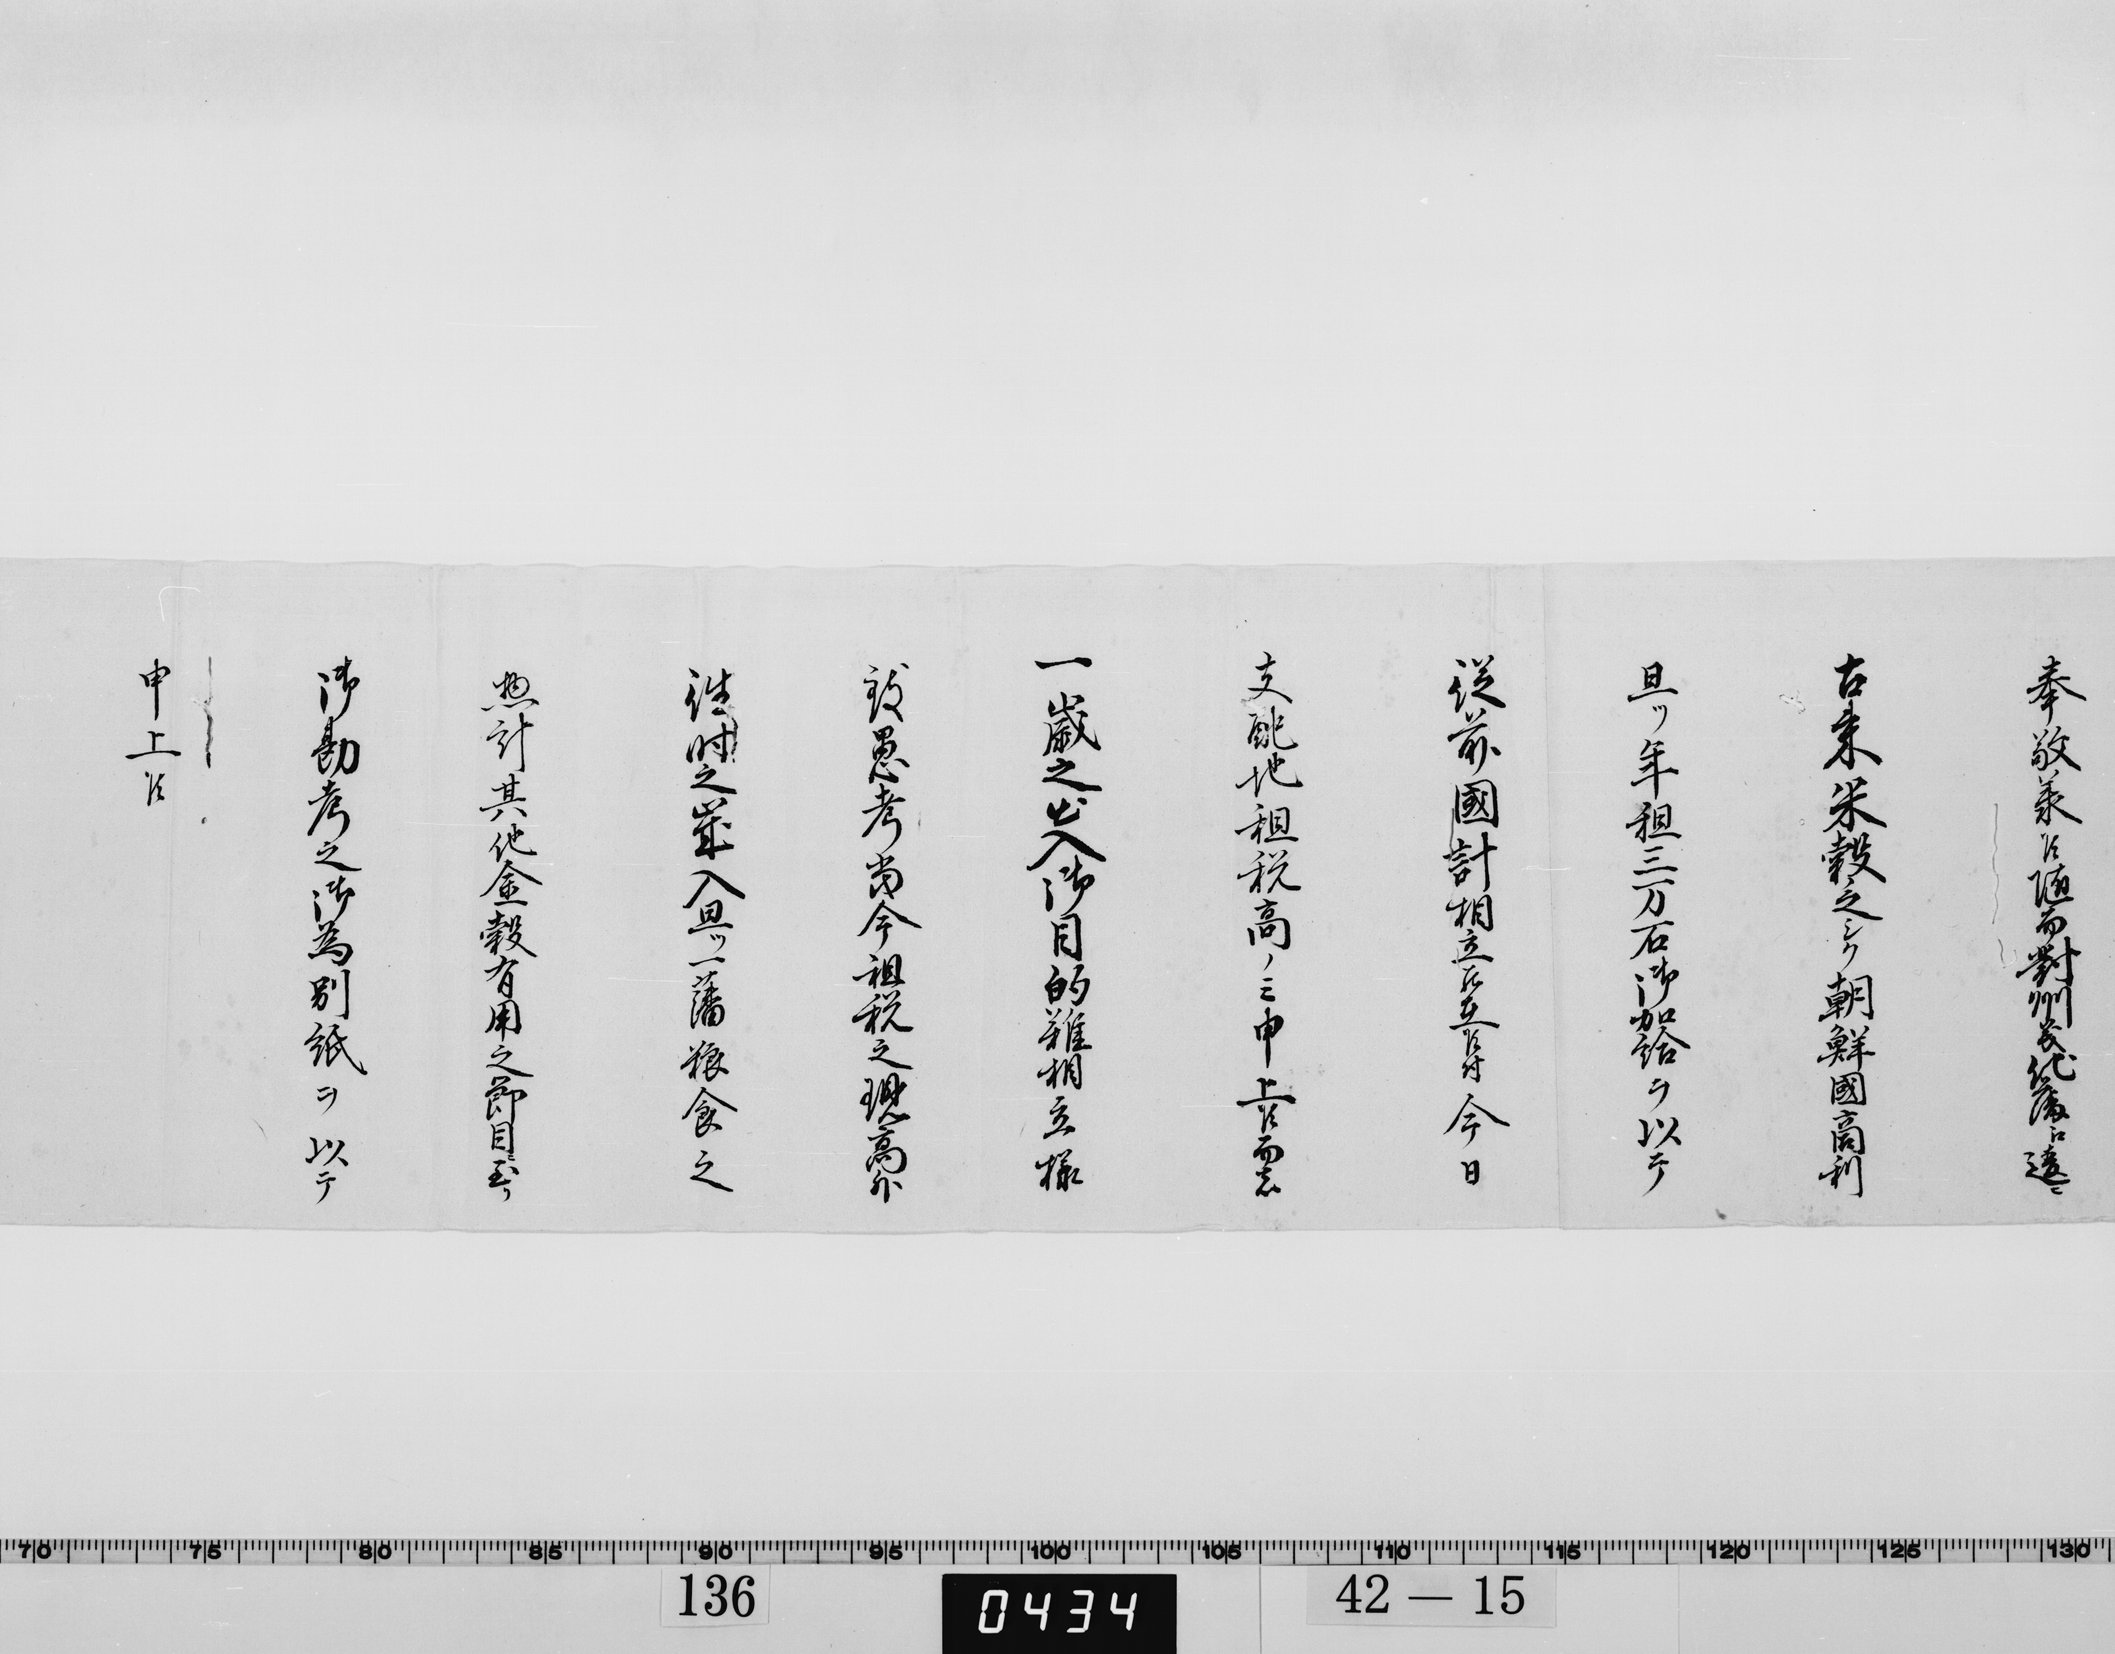 奉敬承候随而對州義他藩与違ニ
古来米穀之シク朝鮮國商利
且ツ年租三万石御加給ヲ以テ
従前國計相立罷在候付今日
支配地租税高ノミ申上候而者
一歳之出入御目的難相立様
致愚考尚今租税之現高外
往時之歳入且ツ一藩粮食之
惣計其他金穀有用之節目ニ至リ
御勘考之御為別紙ヲ以テ
申上候
70 75 80 85 90 95 100 105 110 115 120 125 130
136
0434
42－15